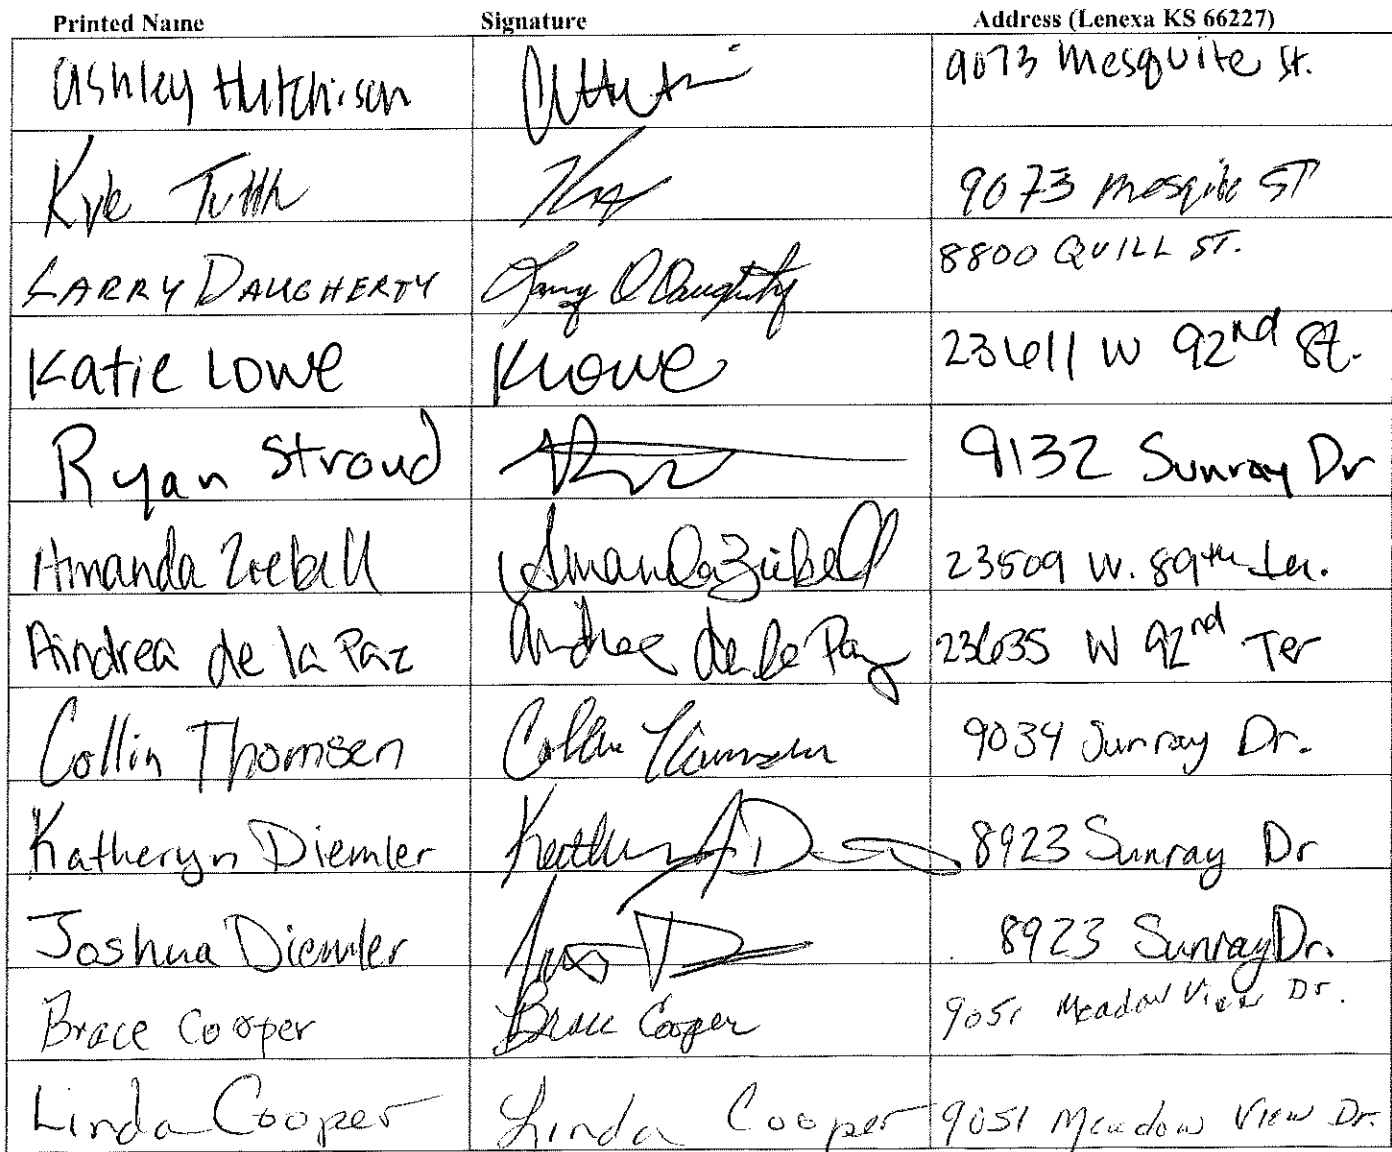 Printed Name Signature Address (Lenexa KS 66227)
Ashley Hutchison 9073 Mesquite St.
Kyle Tuttle 9073 Mesquite ST
LARRY DAUGHERTY Larry D Daugherty 8800 QUILL ST.
Katie Lowe KLowe 23611 W 92nd St.
Ryan Stroud 9132 Sunray Dr
Amanda Ziebell Amanda Ziebell 23509 W. 89th Ter.
Andrea de la Paz Andrea de la Paz 23635 W 92nd Ter
Collin Thomsen Collin Thomsen 9034 Sunray Dr.
Katheryn Diemler 8923 Sunray Dr
Joshua Diemler 8923 Sunray Dr.
Brace Cooper Brace Cooper 9051 Meadow View Dr.
Linda Cooper Linda Cooper 9051 Meadow View Dr.